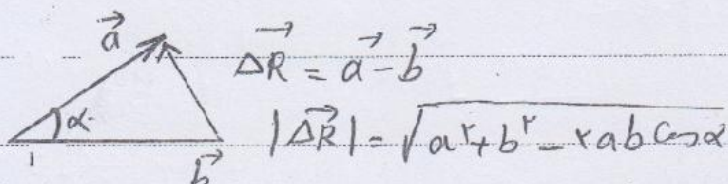 a⃗
ΔR⃗ = a⃗ - b⃗
α
|ΔR⃗| = √(a۲ + b۲ - ۲ab Cos α)
b⃗